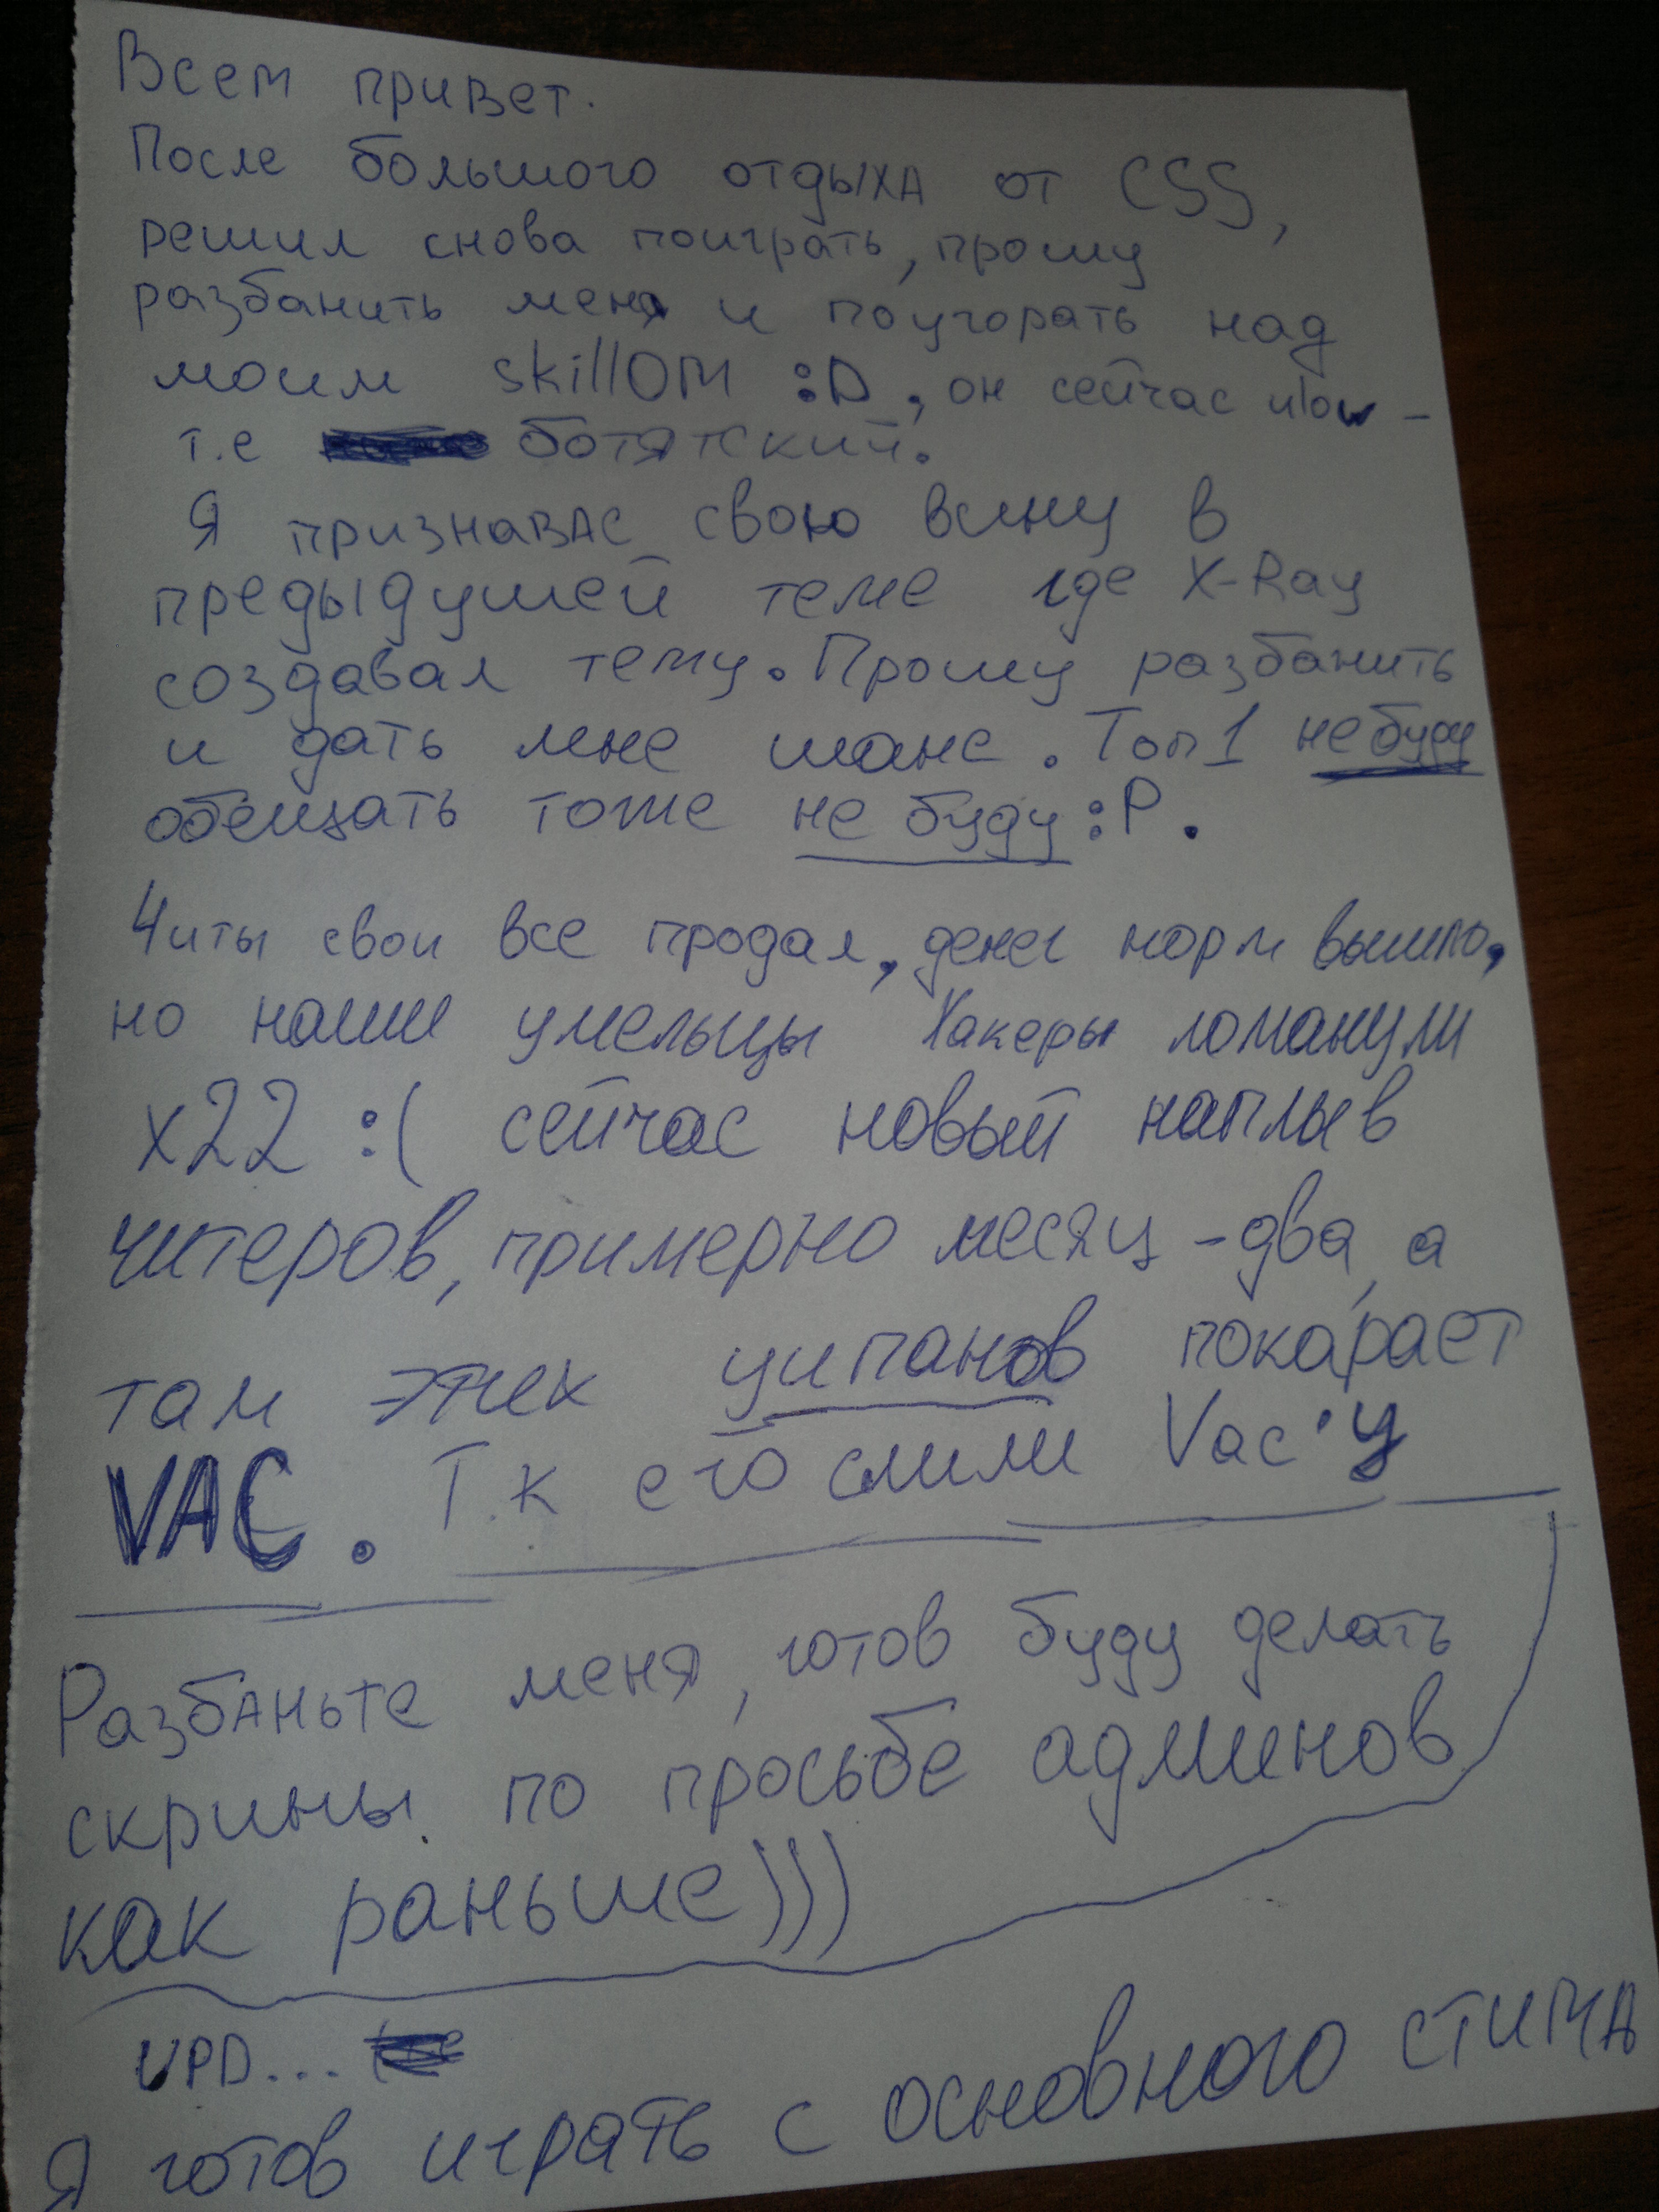 Всем привет.
После большого отдыха от CSS,
решил снова поиграть, прошу
разбанить меня и поугорать над
моим skillOM :D, он сейчас low -
т.е ботятский.
Я признавас свою вину в
предыдушей теме где X-Ray
создавал тему. Прошу разбанить
и дать мне шанс. Топ1 не буду
обещать тоже не буду :P.
Читы свои все продал, денег норм вышло,
но наши умельцы Хакеры ломанули
x22 :( сейчас новый наплыв
читеров, примерно месяц-два, а
там этих ципанов покарает
VAC. Т.к его слили Vac'у
Разбаньте меня, готов буду делать
скрины по просьбе админов
как раньше)))
UPD...
Я готов играть с основного стима